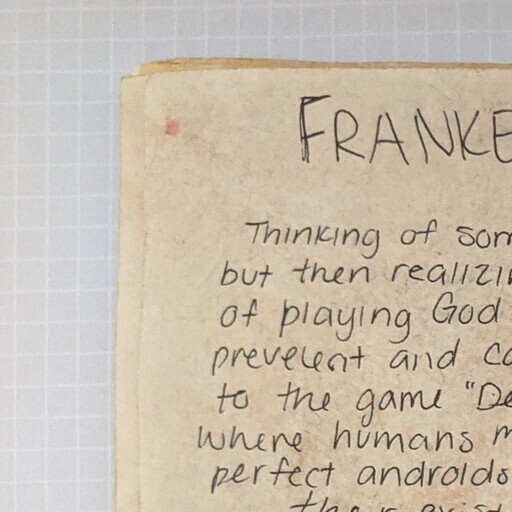 FRANKE
Thinking of som
but then realizin
of playing God
prevelent and co
to the game "De
where humans m
perfect androids
their exist